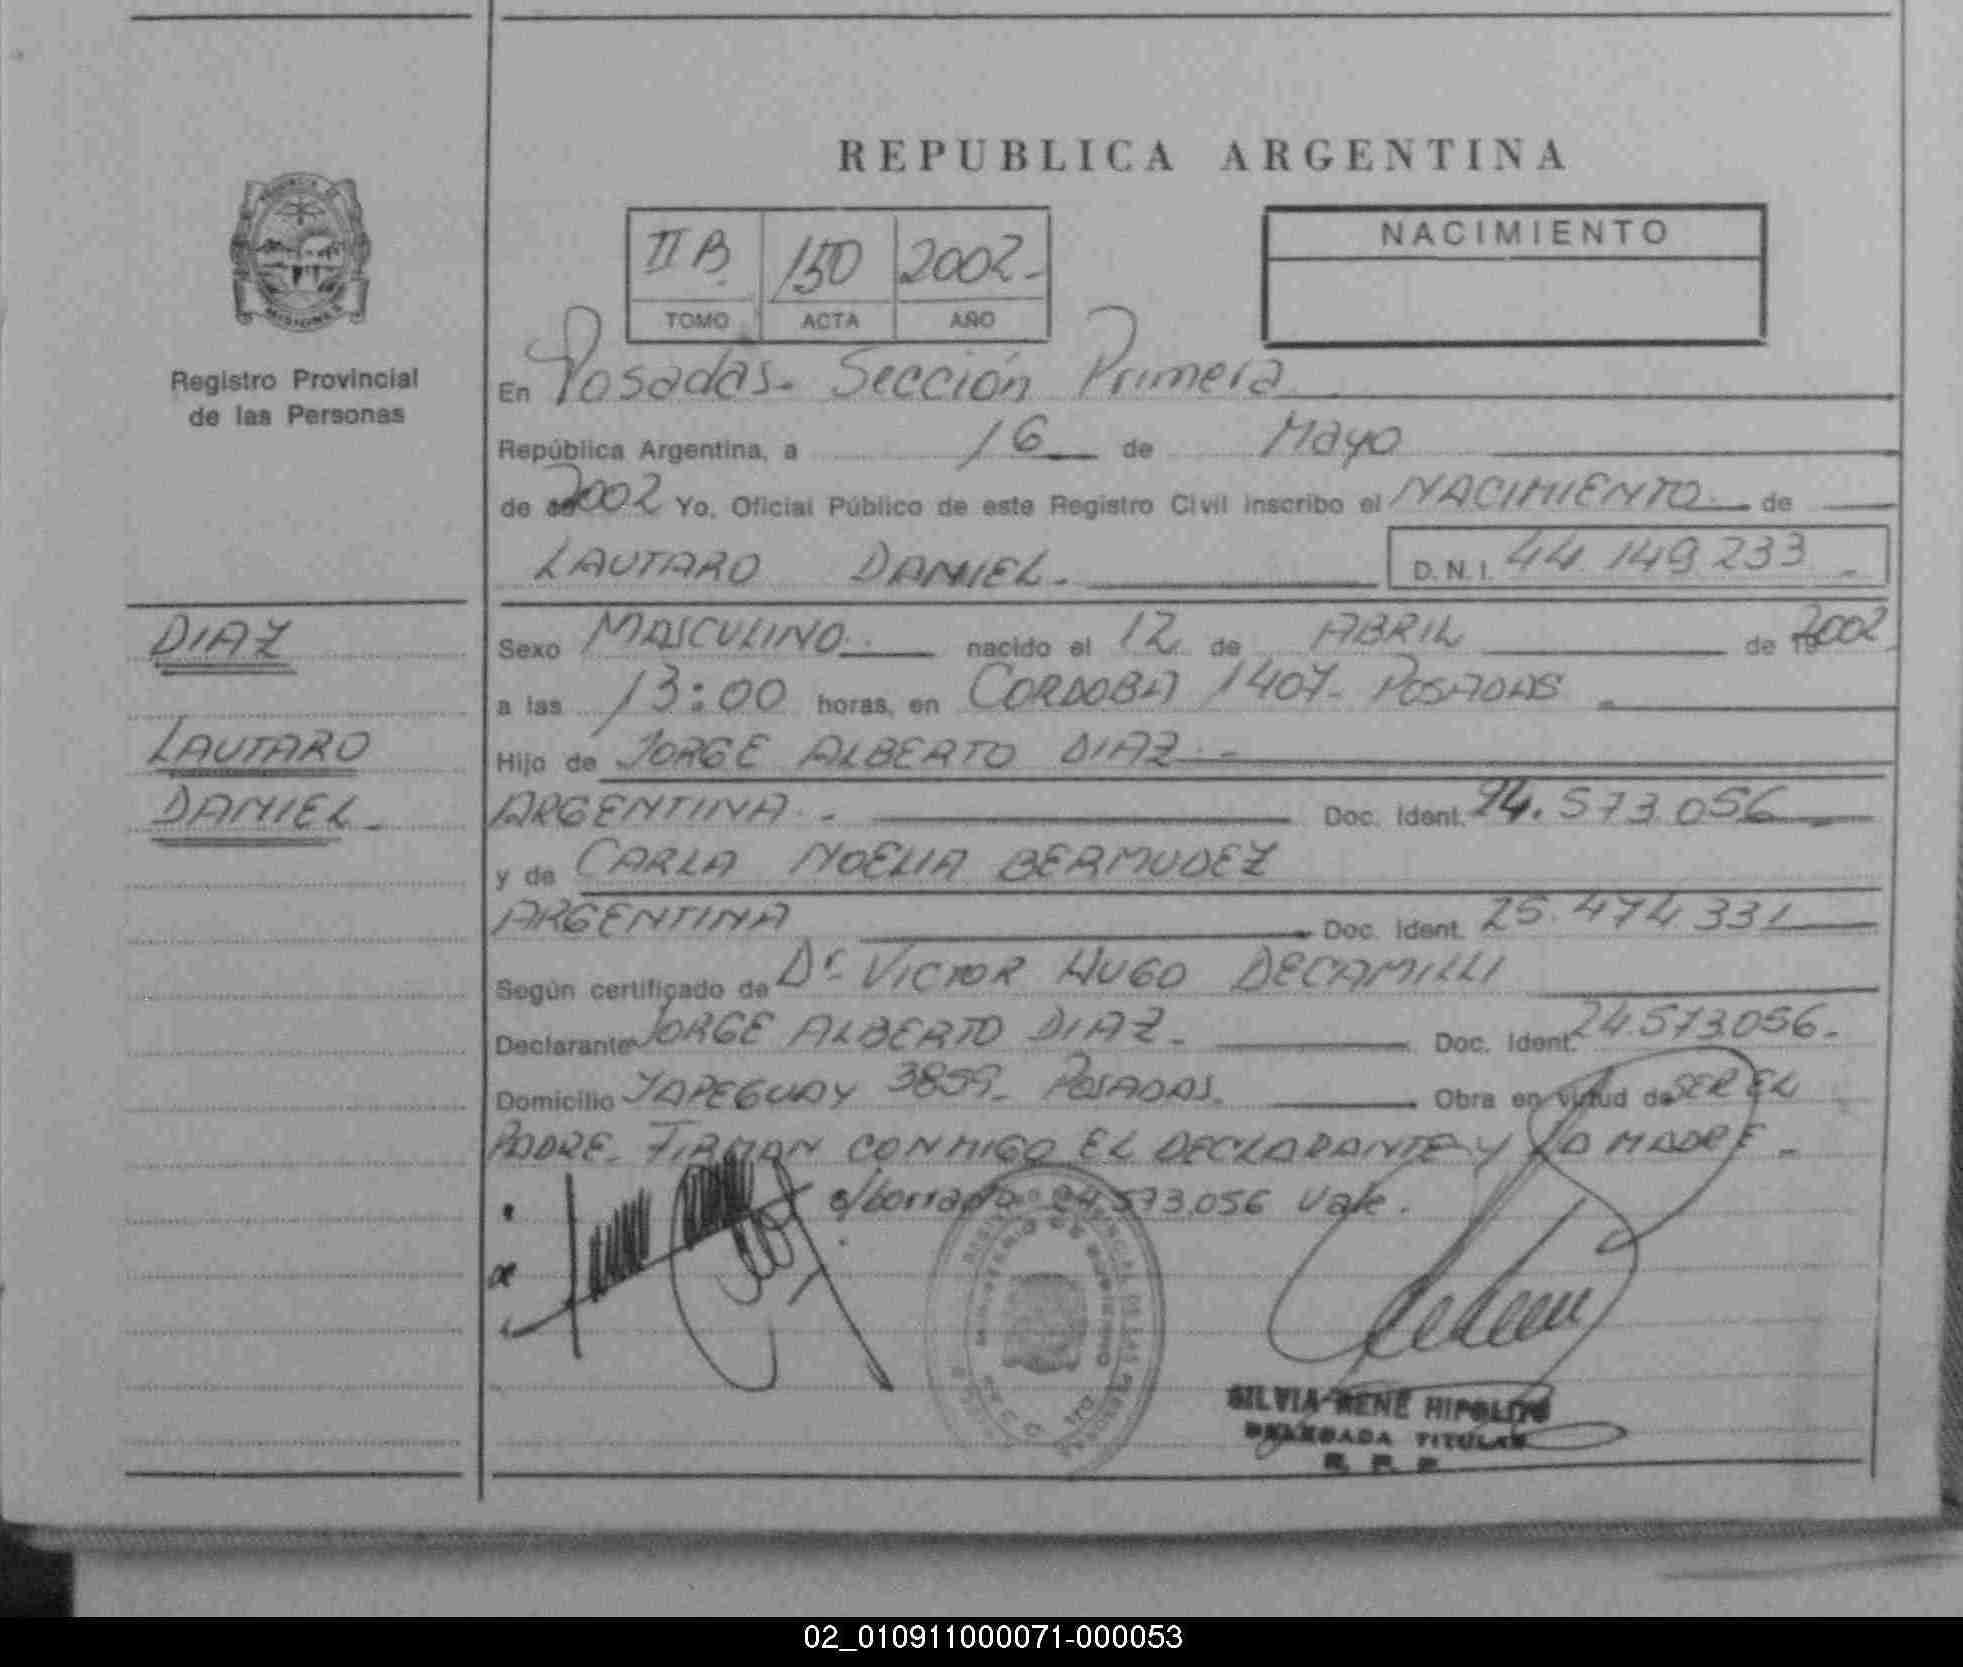 REPUBLICA ARGENTINA
II B 150 2002-
TOMO ACTA AÑO
NACIMIENTO
MISIONES
Registro Provincial
de las Personas
En Posadas- Sección Primera
República Argentina, a 16 de Mayo
de 2002 Yo, Oficial Público de este Registro Civil inscribo el NACIMIENTO de
LAUTARO DANIEL- D.N.I. 44.149.233
DIAZ
LAUTARO
DANIEL-
Sexo MASCULINO nacido el 12 de ABRIL de 2002
a las 13:00 horas, en CORDOBA 1407- POSADAS
Hijo de JORGE ALBERTO DIAZ
ARGENTINA Doc. Ident. 24.573.056
y de CARLA NOELIA BERMUDEZ
ARGENTINA Doc. Ident. 25.474.331
Según certificado de Dr VICTOR HUGO DECAMILLI
Declarante JORGE ALBERTO DIAZ- Doc. Ident. 24.573.056-
Domicilio YAPEGUAY 3859- POSADAS. Obra en virtud de SER EL
PADRE. FIRMAN CONMIGO EL DECLARANTE Y LA MADRE-
s/borrado 24.573.056 Vale.
SILVIA RENE HIPOLITO
DELEGADA TITULAR
R. P. P.
02_010911000071-000053